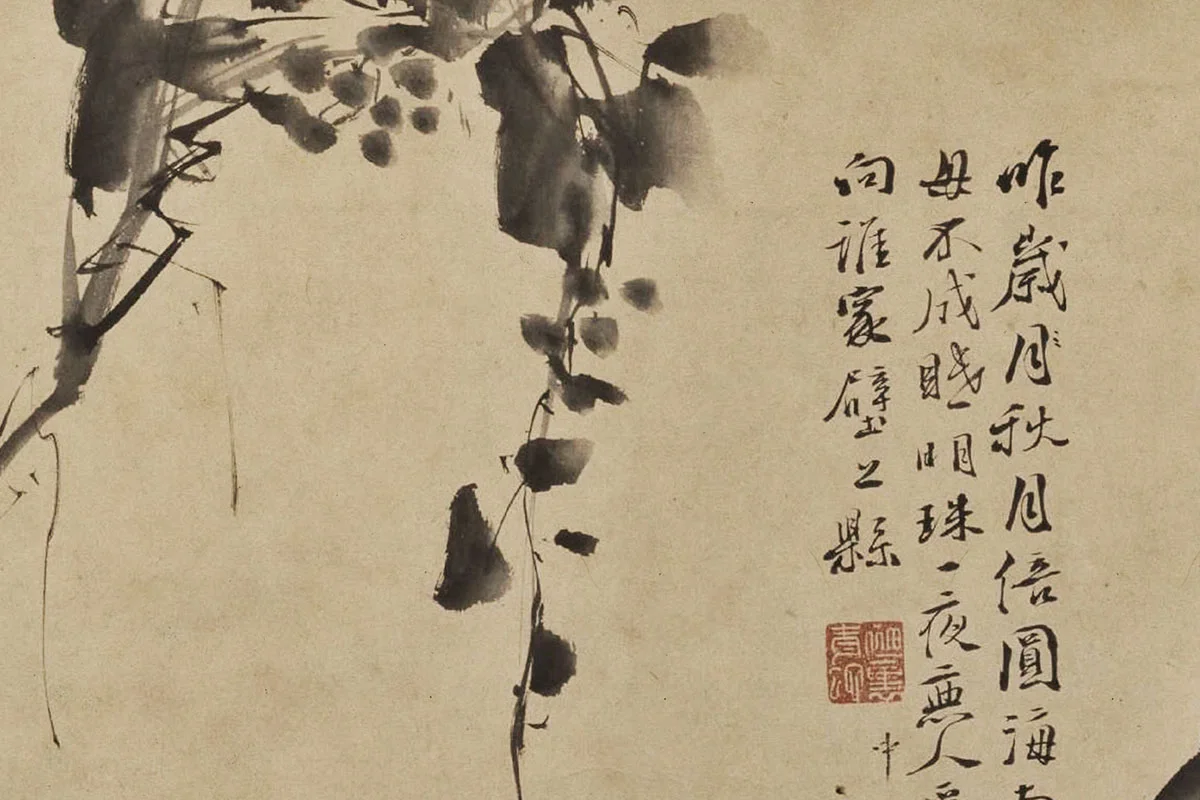 昨歲月秋月倍圓海
母不成眠明珠一夜無人
向誰家壁上縣
中